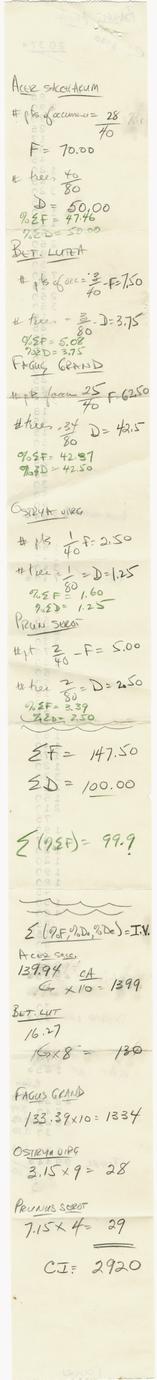 ACER SACCHARUM
# pts of occurrence = 28/40
F = 70.00
# trees 40/80
D = 50.00
%ΣF = 47.46
%ΣD = 50.00
BET. LUTEA
# pts of occ = 3/40 - F = 7.50
# trees - 3/80 - D = 3.75
%ΣF = 5.08
%ΣD = 3.75
FAGUS GRAND
# pts /occur 25/40 F = 62.50
# trees - 34/80 D = 42.5
%ΣF = 42.37
%ΣD = 42.50
OSTRYA VIRG
# pts 1/40 F = 2.50
# trees = 1/80 = D = 1.25
%ΣF = 1.60
%ΣD = 1.25
PRUN SEROT
# pt 2/40 - F = 5.00
# trees 2/80 = D = 2.50
%ΣF = 3.39
%ΣD = 2.50
ΣF = 147.50
ΣD = 100.00
Σ(%ΣF) = 99.9
Σ(%F, %D, %Do) = I.V.
ACER SACC.
139.94 CA
x 10 = 1399
BET. LUT
16.27
16 x 8 = 130
FAGUS GRAND
133.39 x 10 = 1334
OSTRYA VIRG
3.15 x 9 = 28
PRUNUS SEROT
7.15 x 4 = 29
CI = 2920